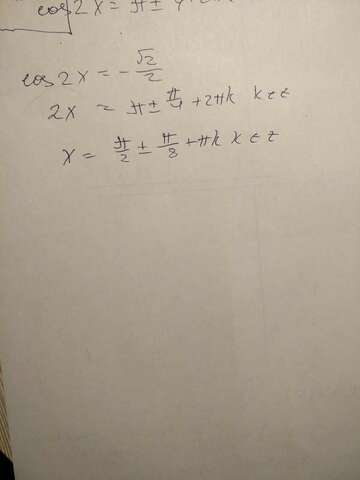 cos 2x = π ±
cos 2x = -√2/2
2x = π ± π/4 + 2πk k ∈ z
x = π/2 ± π/8 + πk k ∈ z